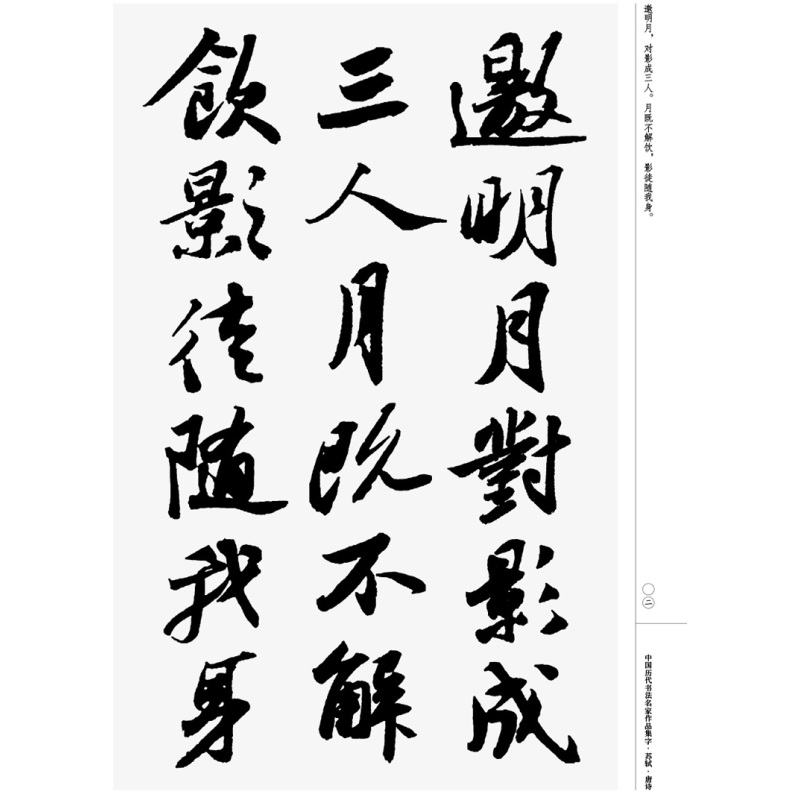 邀明月對影成
三人月既不解
飲影徒隨我身
邀明月，对影成三人。月既不解饮，影徒随我身。
〇二
中国历代书法名家作品集字·苏轼·唐诗